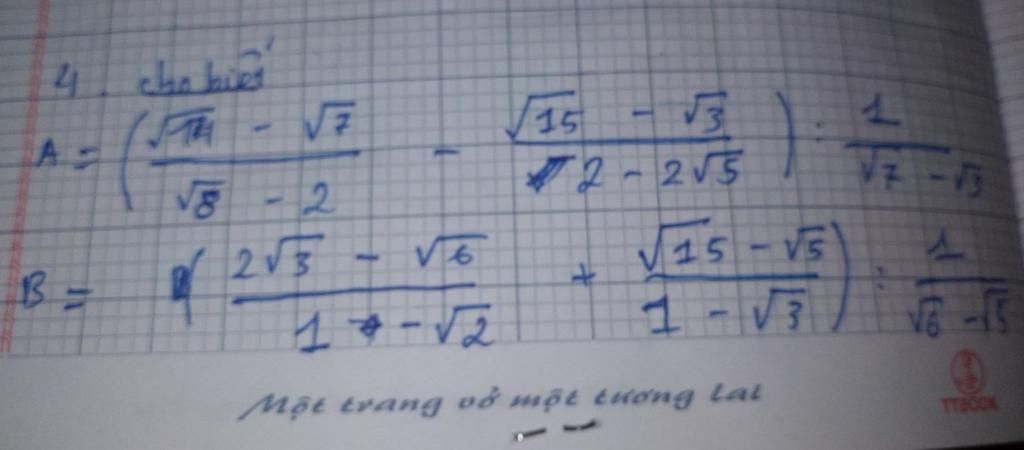 4. cho biết
A = ( (√14 - √7)/(√8 - 2) - (√15 - √3)/(2 - 2√5) ) : 1/(√7 - √3)
B = ( (2√3 - √6)/(1 - √2) + (√15 - √5)/(1 - √3) ) : 1/(√6 - √5)
Một trang vở một tương lai
TTBOOK